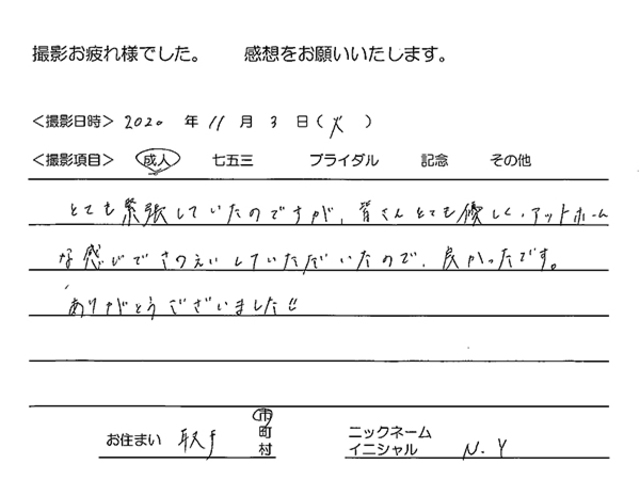 撮影お疲れ様でした。 感想をお願いいたします。
<撮影日時> 2020 年 11 月 3 日(火)
<撮影項目> 成人 七五三 ブライダル 記念 その他
とても緊張していたのですが、皆さんとても優しく、アットホーム
な感じでさつえいしていただいたので、良かったです。
ありがとうございました!!
お住まい 取手 市町村 ニックネーム イニシャル N.Y